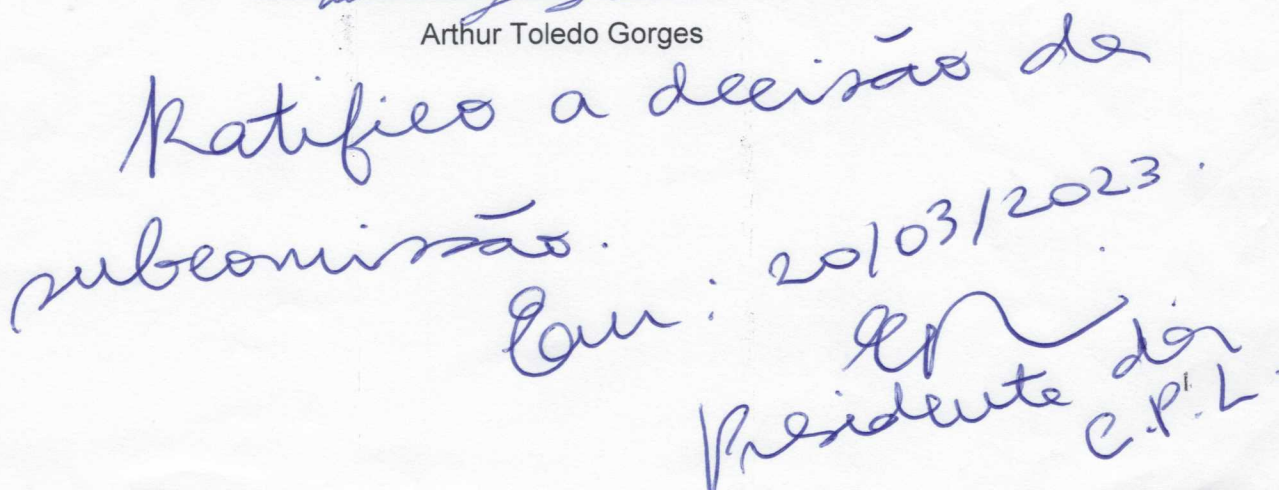 Arthur Toledo Gorges
Ratifico a decisão da
subcomissão.
Em: 20/03/2023.
Presidente da
C.P.L.